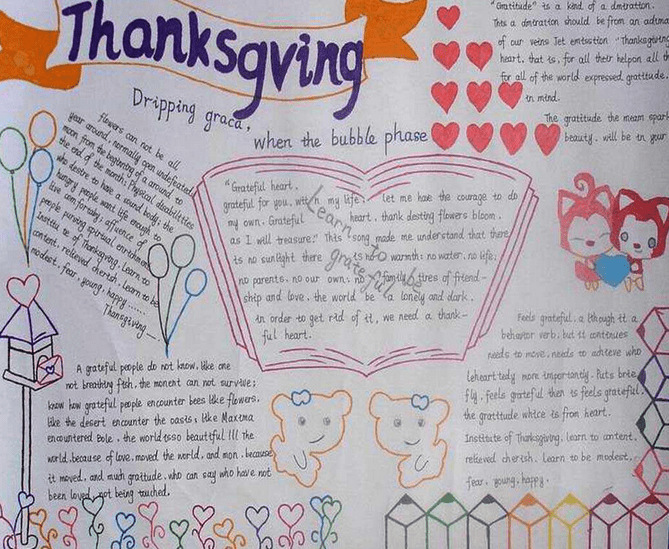 Thanksgving
Dripping graca,
when the bubble phase
"Gratitude" is a kind of a dmtration.
This a dmtration should be from an
of our veins Jet emtsstion "Thanksgiving
heart, that is, for all their helpon all
for all of the world expressed gratitude.
in mind.
The gratitude the meam
beauty. will be in your
flowers can not be all
year around, normally open undefeated;
moon from the beginning of a around to
the end of the month; Physical disabilities
who desire to have a sound body; the
hungry people want life enough to
live on forsaby; affluence of
people pursing spiritual enrichment
Institu te of Thanksgiving. Learn to
content, relieved cherish. Learn to be
modest, fear, young, happy......
Thanksgiving
"Grateful heart,
grateful for you, with my life; let me hae the courage to do
my own. Grateful heart, thank destiny flowers bloom,
as I will treasure;" This song made me understand that there
is no sunlight there is no warmth; no water, no life;
no parents, no our own; no family, tires of friend-
ship and love, the world be a lonely and dark.
in order to get rid of it, we need a thank-
ful heart.
Learn to be
grateful
A grateful people do not know, like one
not breathing fish, the monent can not survive;
know how grateful people encounter bees like flowers,
like the desert encounter the oasis, like Maxima
encountered Bole, the world isso beautiful!!! The
world, because of love, moved the world, and mon, because
it moved, and much gratitude, who can say who have not
been loved, not being touched,
Feels grateful, a lthough it a
behavior verb, but it continues
needs to move, needs to achieve who
leheartedly more importantly. Puts brie
fly, feels grateful then is feels grateful.
the gratitude whice is from heart.
Institute of Thanksgiving. learn to content,
relieved cherish. Learn to be modest,
fear, young, happy.